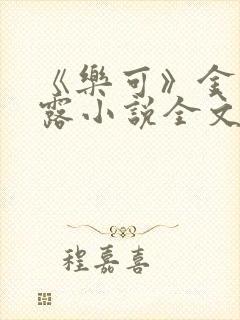 《樂可》金
露小說全文
程嘉喜